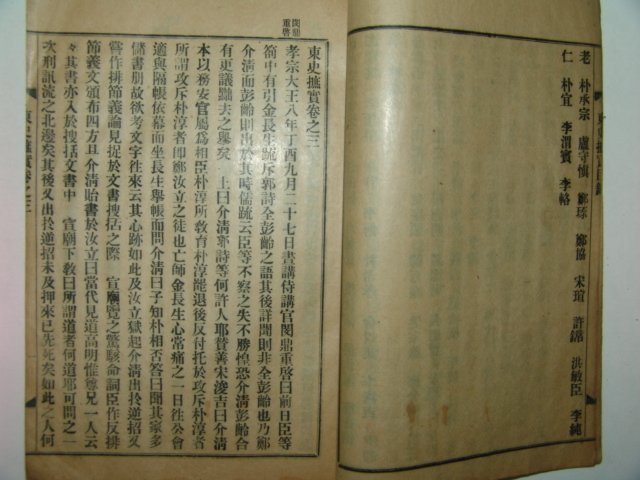 老 朴承宗 盧守愼 鄭協 宋瑄 許 洪敏臣 李純
仁 朴宜 李渭賓 李輅
東史摭實目錄
閔鼎
重啓
東史摭實卷之三
孝宗大王八年丁酉九月二十七日晝講侍講官閔鼎重啓曰前日臣等
箚中有引金長生䟽斥郭詩全彭齡之語其後詳聞則非全彭齡也乃鄭
介淸而彭齡則其時儒䟽云臣等不察之失不勝惶恐介淸彭齡合
有更議黜夫之擧矣 上曰介淸郭詩等何許人耶贊善宋浚吉曰介淸
本以務安官屬爲相臣朴淳所敎育朴淳罷退後反付托於攻斥朴淳者
所謂攻斥朴淳者卽鄭汝立之徒也亡師金長生心常痛之一日往公會
適與隔帳依幕而坐長生擧帳而問介淸曰子知朴相否答曰聞其家多
儲書册故欲考文字往來云其心跡如此及汝立獄起介淸出於逆招又
嘗作排節義論見捉於文書搜括之際 宣廟覽之驚駭命詞臣作反排
節義文頒布四方且介淸貽書於汝立曰當代見道高明惟尊兄一人云
々其書亦入於搜括文書中 宣廟下敎曰所謂道者何道耶可問之一
次刑訊流之北邊矣其後又出於逆招未及押來已先死矣如此之人何
東史摭實卷之三